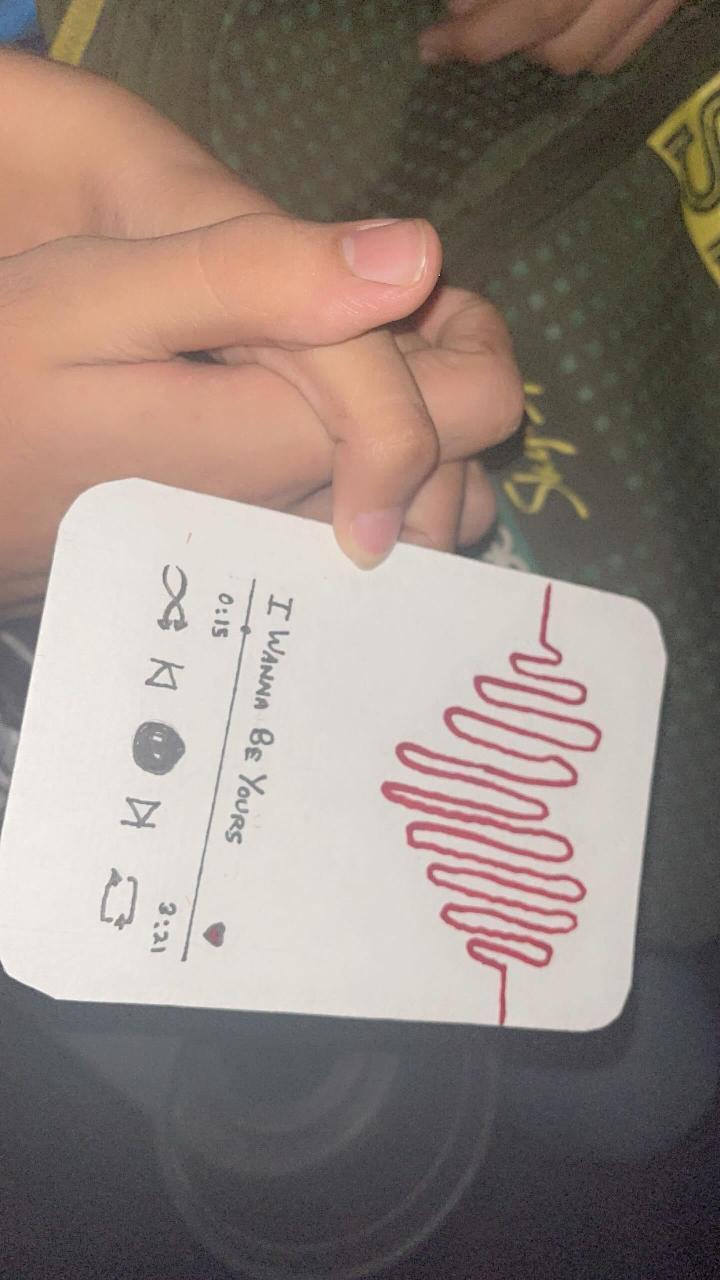 I WANNA BE YOURS
0:15
3:21